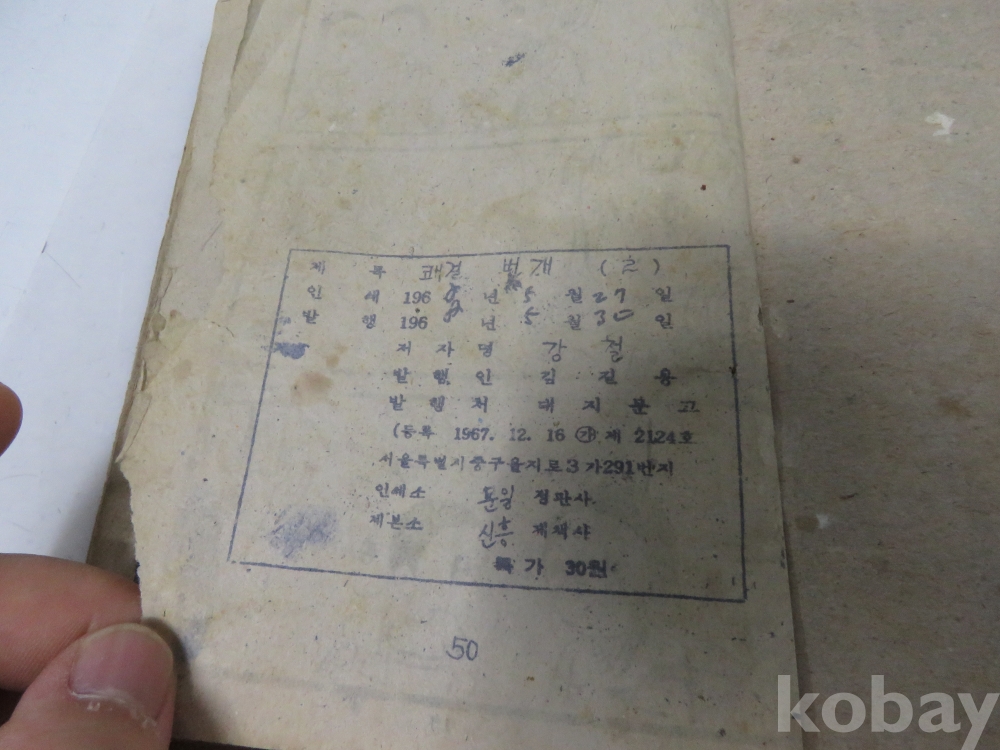 제 목 쾌걸 번개 (2)
인 쇄 1968년 5월 27일
발 행 1968년 5월 30일
저 자 명 강 철
발 행 인 김 길 용
발 행 처 대 지 문 고
(등록 1967. 12. 16 ㉮ 제 2124호
서울특별시중구을지로3가291번지
인쇄소 정판사.
제본소 신흥 제책사
특 가 30원
50
kobay